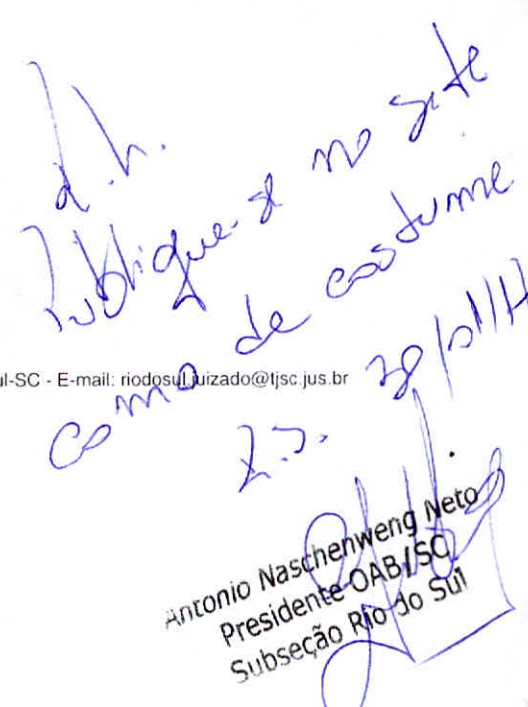 d.h.
Publique-se no site
como de costume
ul-SC - E-mail: riodosul.juizado@tjsc.jus.br
Antonio Naschenweng Neto
Presidente OAB/SC
Subseção Rio do Sul